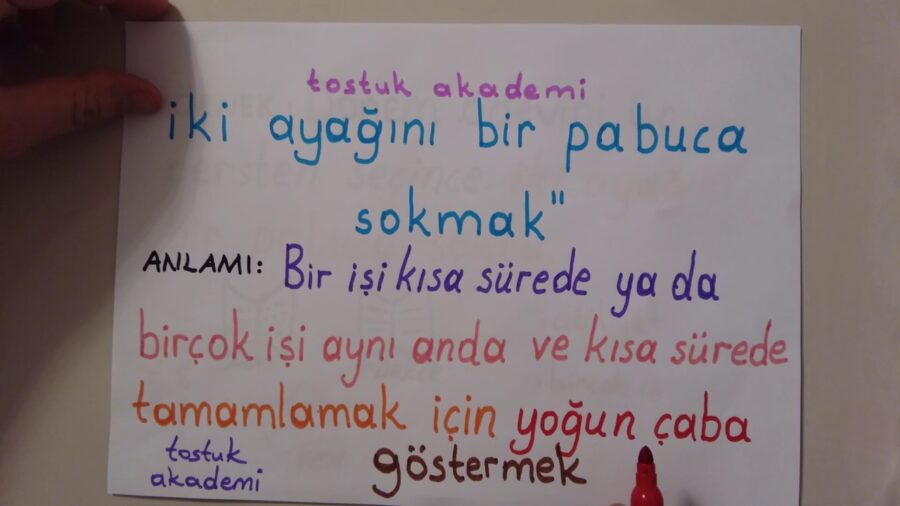 tostuk akademi
iki ayağını bir pabuca
sokmak"
ANLAMI: Bir işi kısa sürede ya da
birçok işi aynı anda ve kısa sürede
tamamlamak için yoğun çaba
göstermek
tostuk
akademi